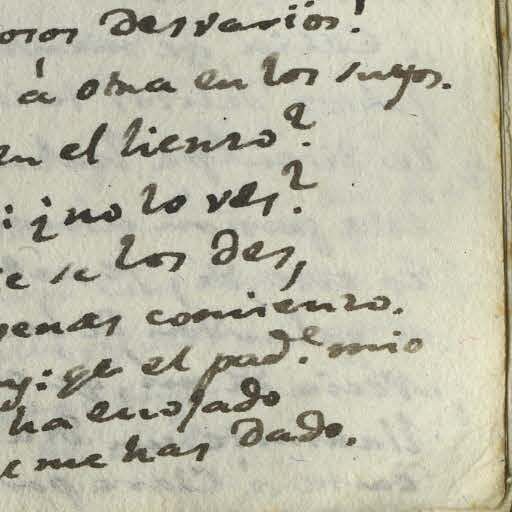 osos desvarios!
á otra en los suyos.
en el lienzo?
: ¿no lo ves?
e se los des,
penas comienzo.
y: qe el pad.e mio
ha enojado
e me has dado.